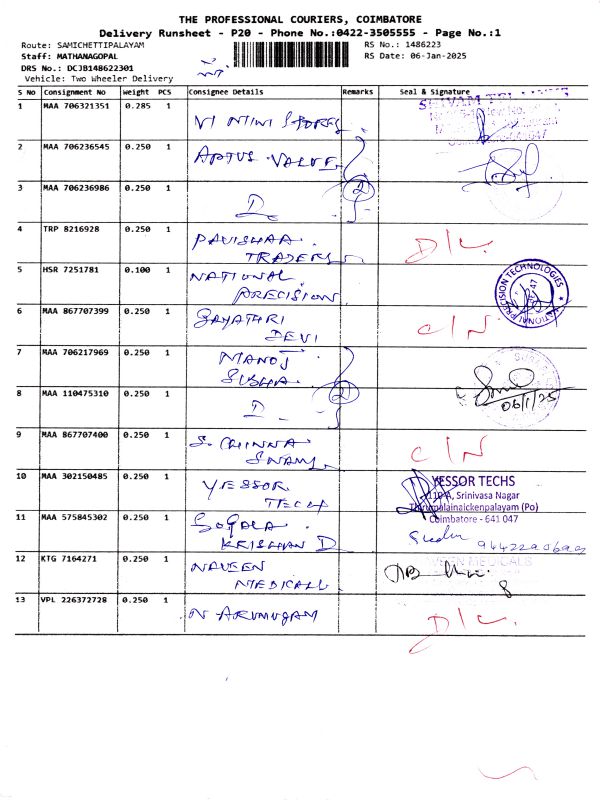 THE PROFESSIONAL COURIERS, COIMBATORE
Delivery Runsheet - P20 - Phone No.:0422-3505555 - Page No.:1
Route: SAMICHETTIPALAYAM RS No.: 1486223
Staff: MATHANAGOPAL RS Date: 06-Jan-2025
DRS No.: DCJB148622301
Vehicle: Two Wheeler Delivery
S No Consignment No Weight PCS Consignee Details Remarks Seal & Signature
1 MAA 706321351 0.285 1
VI NTIWI STORES
2 MAA 706236545 0.250 1
APTUS VALUE
3 MAA 706236986 0.250 1
D 2
4 TRP 8216928 0.250 1
PAVISHAA TRADERS D/L
5 HSR 7251781 0.100 1
NATIONAL PRECISION
NATIONAL PRECISION TECHNOLOGIES
6 MAA 867707399 0.250 1
GAYATHRI DEVI C/N
7 MAA 706217969 0.250 1
MANOJ SUSHA
8 MAA 110475310 0.250 1
D 2
06/1/25
9 MAA 867707400 0.250 1
S. CHINNA SWAMY C/N
10 MAA 302150485 0.250 1
YESSOR TECH
YESSOR TECHS
Srinivasa Nagar
Thirupalainaickenpalayam (Po)
Coimbatore - 641 047
11 MAA 575845302 0.250 1
GOPALA KRISHNAN D
12 KTG 7164271 0.250 1
NAVEEN MEDICALL
13 VPL 226372728 0.250 1
N ARUMUGAM D/L